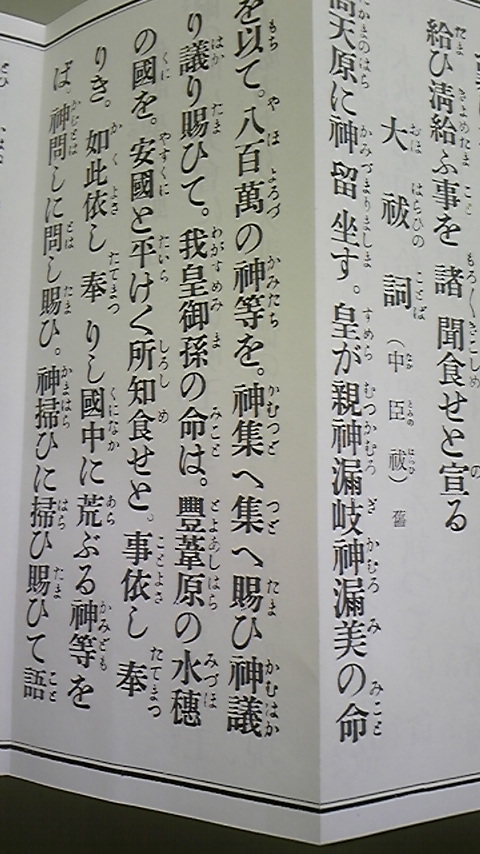 給ひ淸給ふ事を諸聞食せと宣る
大祓詞(中臣祓)舊
高天原に神留坐す。皇が親神漏岐神漏美の命
を以て。八百萬の神等を。神集へ集へ賜ひ神議
り議り賜ひて。我皇御孫の命は。豐葦原の水穗
の國を。安國と平けく所知食せと。事依し奉
りき。如此依し奉りし國中に荒ぶる神等を
ば。神問しに問し賜ひ。神掃ひに掃ひ賜ひて語